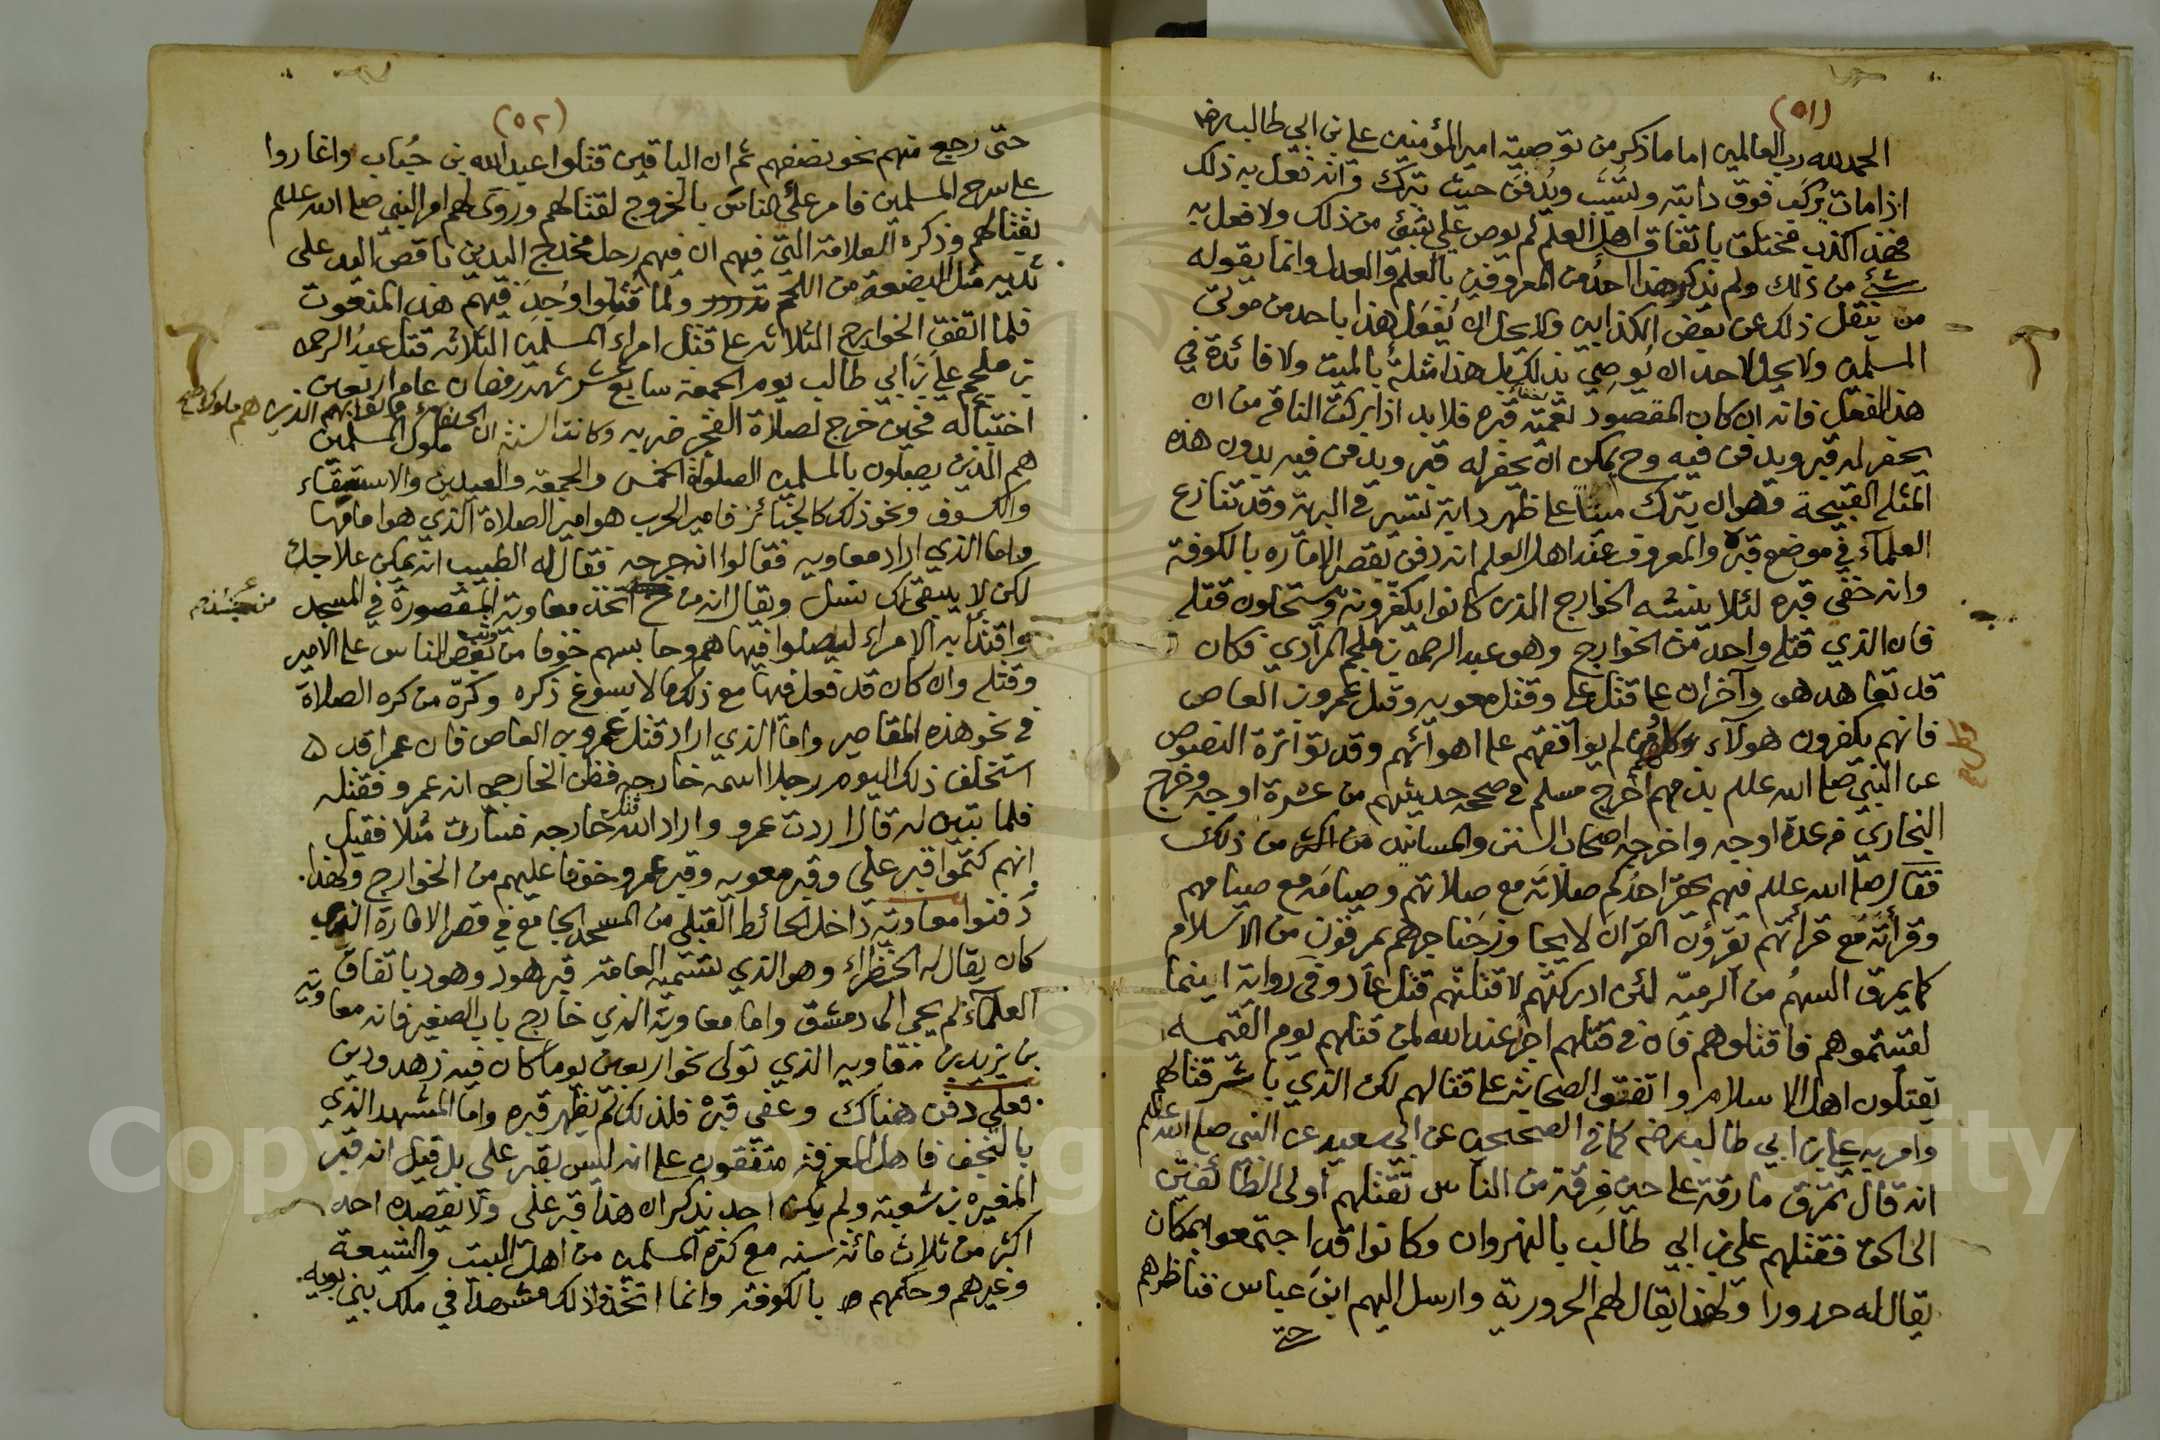 (٥١)
الحمد لله رب العالمين اما ما ذكر من توصية امير المؤمنين علي بن ابي طالب رضه
اذا مات يركب فوق دابته وتسيب ويدفن حيث تبرك وانه فعل به ذلك
فهذا كذب مختلق باتفاق اهل العلم لم يوص علي بشئ من ذلك ولا فعل به
شئ من ذلك ولم يذكر هذا احد من المعروفين بالعلم والعدل وانما يقوله
من ينقل ذلك عن بعض الكذابين ولا يحل ان يُفعَل هذا باحد من موتى
المسلمين ولا يحل لاحد ان يوصي بذلك بل هذا مثلة بالميت ولا فائدة في
هذا الفعل فانه ان كان المقصود تعمية قبره فلا بد اذا بركت الناقة من ان
يحفر له قبر ويدفن فيه وح يمكن ان يحفر له قبر ويدفن فيه بدون هذه
المثلة القبيحة وهو ان يترك ميتا على ظهر دابة تسير في البرية وقد تنازع
العلماء في موضع قبره والمعروف عند اهل العلم انه دفن بقصر الامارة بالكوفة
وانه خفي قبره لئلا ينبشه الخوارج الذين كانوا يكفرونه ويستحلون قتله
فان الذي قتله واحد من الخوارج وهو عبد الرحمن بن ملجم المرادي فكان
قد تعاهد هو وآخران على قتل علي وقتل معويه وقتل عمرو بن العاص
فانهم يكفرون هولاء وكل من لم يوافقهم على اهوائهم وقد تواترة النصوص
عن النبي صلى الله علم بذمهم اخرج مسلم في صحيحه حديثهم من عشرة اوجه وخرج
البخاري في عدة اوجه واخرجه اصحاب السنن والمسانيد من اكثر من ذلك
فقال صلى الله علم فيهم يحقر احدكم صلاته مع صلاتهم وصيامه مع صيامهم
وقرأته مع قرأتهم يقرؤن القران لا يجاوز حناجرهم يمرقون من الاسلام
كما يمرق السهم من الرمية لئن ادركتهم لاقتلنهم قتل عاد وفي رواية اينما
لقيتموهم فاقتلوهم فان في قتلهم اجرا عند الله لمن قتلهم يوم القيمه
يقتلون اهل الاسلام واتفق الصحابة على قتالهم لكن الذي باشر قتالهم
وامر به علي بن ابي طالب رضه كما في الصحيحين عن ابي سعيد عن النبي صلى الله علم
انه قال تمرق مارقة على حين فرقة من الناس تقتلهم اولى الطائفتين
الى الحق فقتلهم علي بن ابي طالب بالنهروان وكانوا قد اجتمعوا بمكان
يقال له حرورا ولهذا يقال لهم الحرورية وارسل اليهم ابن عباس فناظرهم
حتى
(٥٢)
حتى رجع منهم نحو نصفهم ثم ان الباقين قتلوا عبد الله بن خباب واغاروا
على سرح المسلمين فامر علي الناس بالخروج لقتالهم وروى لهم امر النبي صلى الله علم
بقتالهم وذكر العلامة التي فيهم ان فيهم رجل مخدج اليدين ناقص اليد على
ثديه مثل البضعة من اللحم تدردر ولما قتلوا وُجد فيهم هذا المنعوت
فلما اتفق الخوارج الثلاثه على قتل امراء المسلمين الثلاثه قتل عبد الرحمن
بن ملجم علي بن ابي طالب يوم الجمعة سابع عشر شهر رمضان عام اربعين
اختبأ له فحين خرج لصلاة الفجر ضربه وكانت السنة ان الخلفاء ونوابهم الذين هم ملوك المسلمين
هم الذين يصلون بالمسلمين الصلوات الخمس والجمعة والعيدين والاستسقاء
والكسوف ونحو ذلك كالجنائز فامير الحرب هو امير الصلاة الذي هو امامها
واما الذي اراد معاويه فقالوا انه جرحه فقال له الطبيب انه يمكن علاجك
لكن لا يبقى لك نسل ويقال انه من ح اتخذ معاوية المقصورة في المسجد
واقتدا به الامراء ليصلوا فيها هم وحاشيتهم خوفا من وثب بعض الناس على الامير
وقتله وان كان قد فعل فيها مع ذلك ما لا يسوغ ذكره وكره من كره الصلاة
في نحو هذه المقاصير واما الذي اراد قتل عمرو بن العاص فان عمرا قد
استخلف ذلك اليوم رجلا اسمه خارجه فظن الخارجي انه عمرو فقتله
فلما تبين له قال اردت عمرو واراد الله خارجه فسارت مثلا فقيل
انهم كتموا قبر علي وقبر معويه وقبر عمرو خوفا عليهم من الخوارج ولهذا
دفنوا معاوية داخل الحائط القبلي من المسجد الجامع في قصر الامارة الذي
كان يقال له الخضراء وهو الذي تسميه العامة قبر هود وهود باتفاق
العلماء لم يجي الى دمشق واما معاوية الذي خارج باب الصغير فانه معاوية
بن يزيد بن معاويه الذي تولى نحو اربعين يوما كان فيه زهد ودين
فعلي دفن هناك وعفى قبره فلذلك لم يظهر قبره واما المشهد الذي
بالنجف فاهل المعرفة متفقون على انه ليس بقبر علي بل قيل انه قبر
المغيرة بن شعبة ولم يكن احد يذكر ان هذا قبر علي ولا يقصده احد
اكثر من ثلاث مائة سنه مع كثرة المسلمين من اهل البيت والشيعة
وغيرهم وحكمهم بالكوفة وانما اتخذوا ذلك مشهدا في ملك بني بويه
Copyright © King University